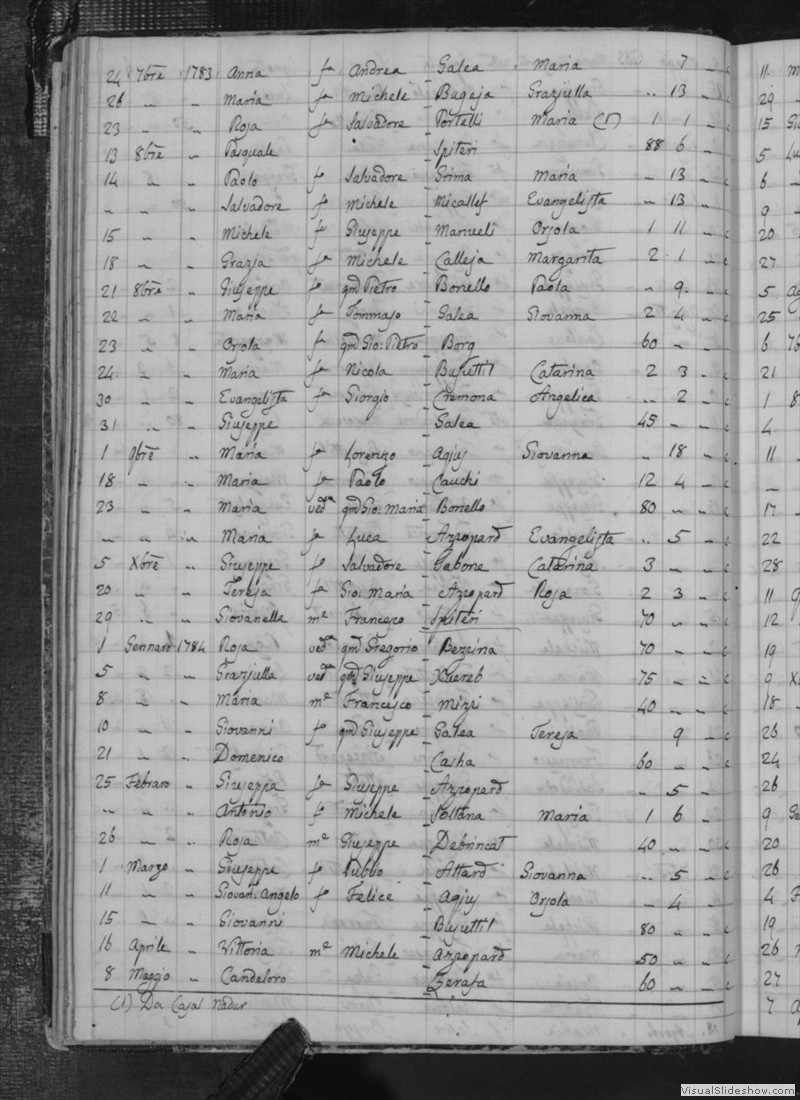 24 7bre 1783 Anna fa Andrea Galea Maria 7 „
26 „ „ Maria fa Michele Bugeja Graziulla .. 13 „
23 „ „ Roja fa Salvadore Portelli Maria (1) 1 1 „
13 8bre „ Pasquale Spiteri 88 6 „
14 „ „ Paolo fo Salvadore Grima Maria „ 13 „
„ „ „ Salvadore fo Michele Micallef Evangelista „ 13 „
15 „ „ Michele fo Giuseppe Manueli Orsola 1 11 „
18 „ „ Grazia fa Michele Calleja Margarita 2 1 „
21 8bre „ Giuseppe fo qm Pietro Bonello Paola „ 9 „
22 „ „ Maria fa Tommaso Galea Giovanna 2 4 „
23 „ „ Orsola fa qm Gio: Pietro Borg 60 „ „
24 „ „ Maria fa Nicola Busuttil Catarina 2 3 „
30 „ „ Evangelista fa Giorgio Cremona Angelica .. 2 „
31 „ „ Giuseppe Galea 45 „ „
1 9bre „ Maria fa Lorenzo Agius Giovanna „ 18 „
18 „ „ Maria fa Paolo Cauchi 12 4 „
23 „ „ Maria veda qm Gio: Maria Bonello 80 „ „
„ „ „ Maria fa Luca Azzopard Evangelista .. 5 „
5 Xbre „ Giuseppe fo Salvadore Gabone Catarina 3 „ „
20 „ „ Teresa fa Gio: Maria Azzopard Roja 2 3 „
29 „ „ Giovanella me Francesco Spiteri 70 „ „
1 Gennaro 1784 Roja veda qm Gregorio Bezzina 70 „ „
5 „ „ Graziulla veda qm Giuseppe Xuereb 75 „ „
8 „ „ Maria me Francesco Mizzi 40 „ „
10 „ „ Giovanni fo qm Giuseppe Galea Teresa 9 „
21 „ „ Domenico Casha 60 „ „
25 Febraro „ Giuseppa fa Giuseppe Azzopard „ 5 „
„ „ „ Antonio fo Michele Soltana Maria 1 6 „
26 „ „ Roja me Giuseppe Debrincat 40 „ „
1 Marzo „ Giuseppe fo Publio Attard Giovanna .. 5 „
11 „ „ Giovan: Angelo fo Felice Agius Orsola „ 4 „
15 „ „ Giovanni Busuttil 80 „ „
16 Aprile „ Vittoria me Michele Azzopard 50 „ „
8 Maggio „ Candeloro Zerafa 60 „ „
(1) Da Casal Nadur
VisualSlideshow.com